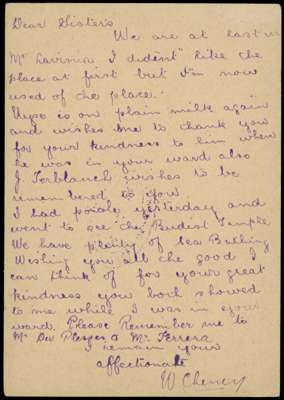 Dear Sisters
We are at last in
Mt Lavinia I dident like the
place at first but I'm now
used of the place.
is on plain milk again
and wishes me to thank you
for your kindness to him when
he was in your ward also
J Terblanch wishes to be
remembered to you
I had yesterday and
went to see the Budist Temple
We have plenty of Sea Bathing
Wishing you all the good I
can think of for your great
kindness you both showed
to me while I was in your
ward. Please Remember me to
Mr Dev & Mr Ferrera
I remain your
affectionate
W Cheney